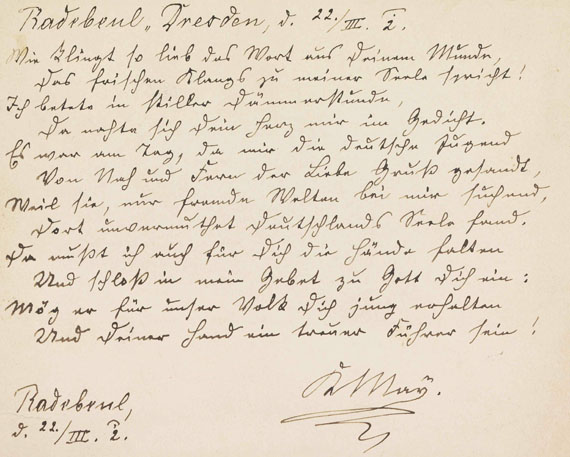 Radebeul-Dresden, d. 22./III. 2.
Wie klingt so lieb das Wort aus Deinem Munde,
Das frischen Klangs zu meiner Seele spricht!
Ich betete in stiller Dämmerstunde,
Da nahte sich Dein Herz mir im Gedicht.
Es war am Tag, da mir die deutsche Jugend
Von Nah und Fern der Liebe Gruß gesandt,
Weil sie, nur fremde Welten bei mir suchend,
Dort unvermuthet Deutschlands Seele fand.
Da mußt ich auch für Dich die Hände falten
Und schloß in mein Gebet zu Gott Dich ein:
Mög er für unser Volk Dich jung erhalten
Und Deiner Hand ein treuer Führer sein!
K May.
Radebeul,
d. 22./III. 2.